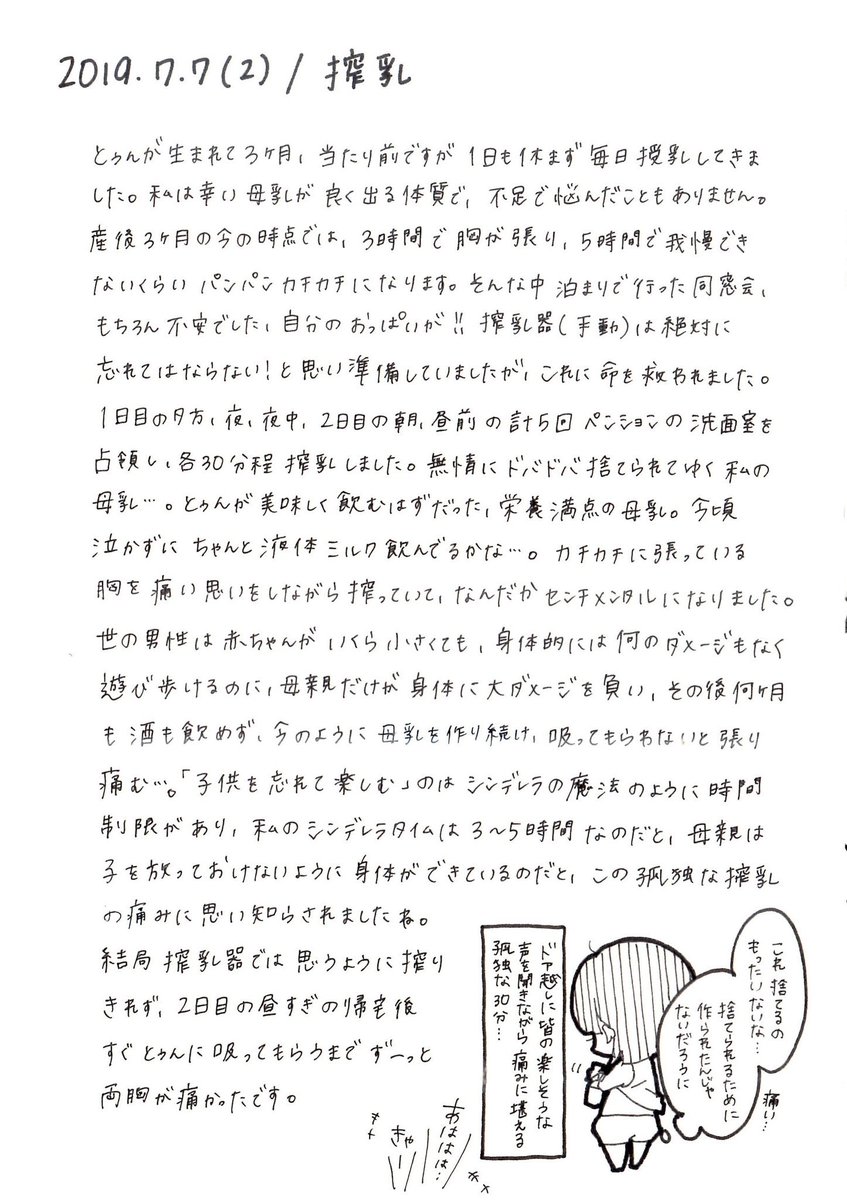 2019.7.7(2) / 搾乳
とぅんが生まれて3ヶ月、当たり前ですが1日も休まず毎日授乳してきま
した。私は幸い母乳が良く出る体質で、不足で悩んだこともありません。
産後3ヶ月の今の時点では、3時間で胸が張り、5時間で我慢でき
ないくらいパンパンカチカチになります。そんな中泊まりで行った同窓会、
もちろん不安でした、自分のおっぱいが!! 搾乳器(手動)は絶対に
忘れてはならない!と思い準備していましたが、これに命を救われました。
1日目の夕方、夜、夜中、2日目の朝、昼前の計5回ペンションの洗面室を
占領し、各30分程搾乳しました。無情にドバドバ捨てられてゆく私の
母乳…。とぅんが美味しく飲むはずだった、栄養満点の母乳。今頃
泣かずにちゃんと液体ミルク飲んでるかな…。カチカチに張っている
胸を痛い思いをしながら搾っていて、なんだかセンチメンタルになりました。
世の男性は赤ちゃんがいくら小さくても、身体的には何のダメージもなく
遊び歩けるのに、母親だけが身体に大ダメージを負い、その後何ヶ月
も酒も飲めず、今のように母乳を作り続け、吸ってもらわないと張り
痛む…。「子供を忘れて楽しむ」のはシンデレラの魔法のように時間
制限があり、私のシンデレラタイムは3〜5時間なのだと、母親は
子を放っておけないように身体ができているのだと、この孤独な搾乳
の痛みに思い知らされましたね。
結局搾乳器では思うように搾り
きれず、2日目の昼すぎの帰宅後
すぐとぅんに吸ってもらうまでずーっと
両胸が痛かったです。
これ捨てるの
もったいないな…
捨てられるために
作られたんじゃ
ないだろうに
痛い…
ドア越しに皆の楽しそうな
声を聞きながら痛みに堪える
孤独な30分…
あははは…
きゃー